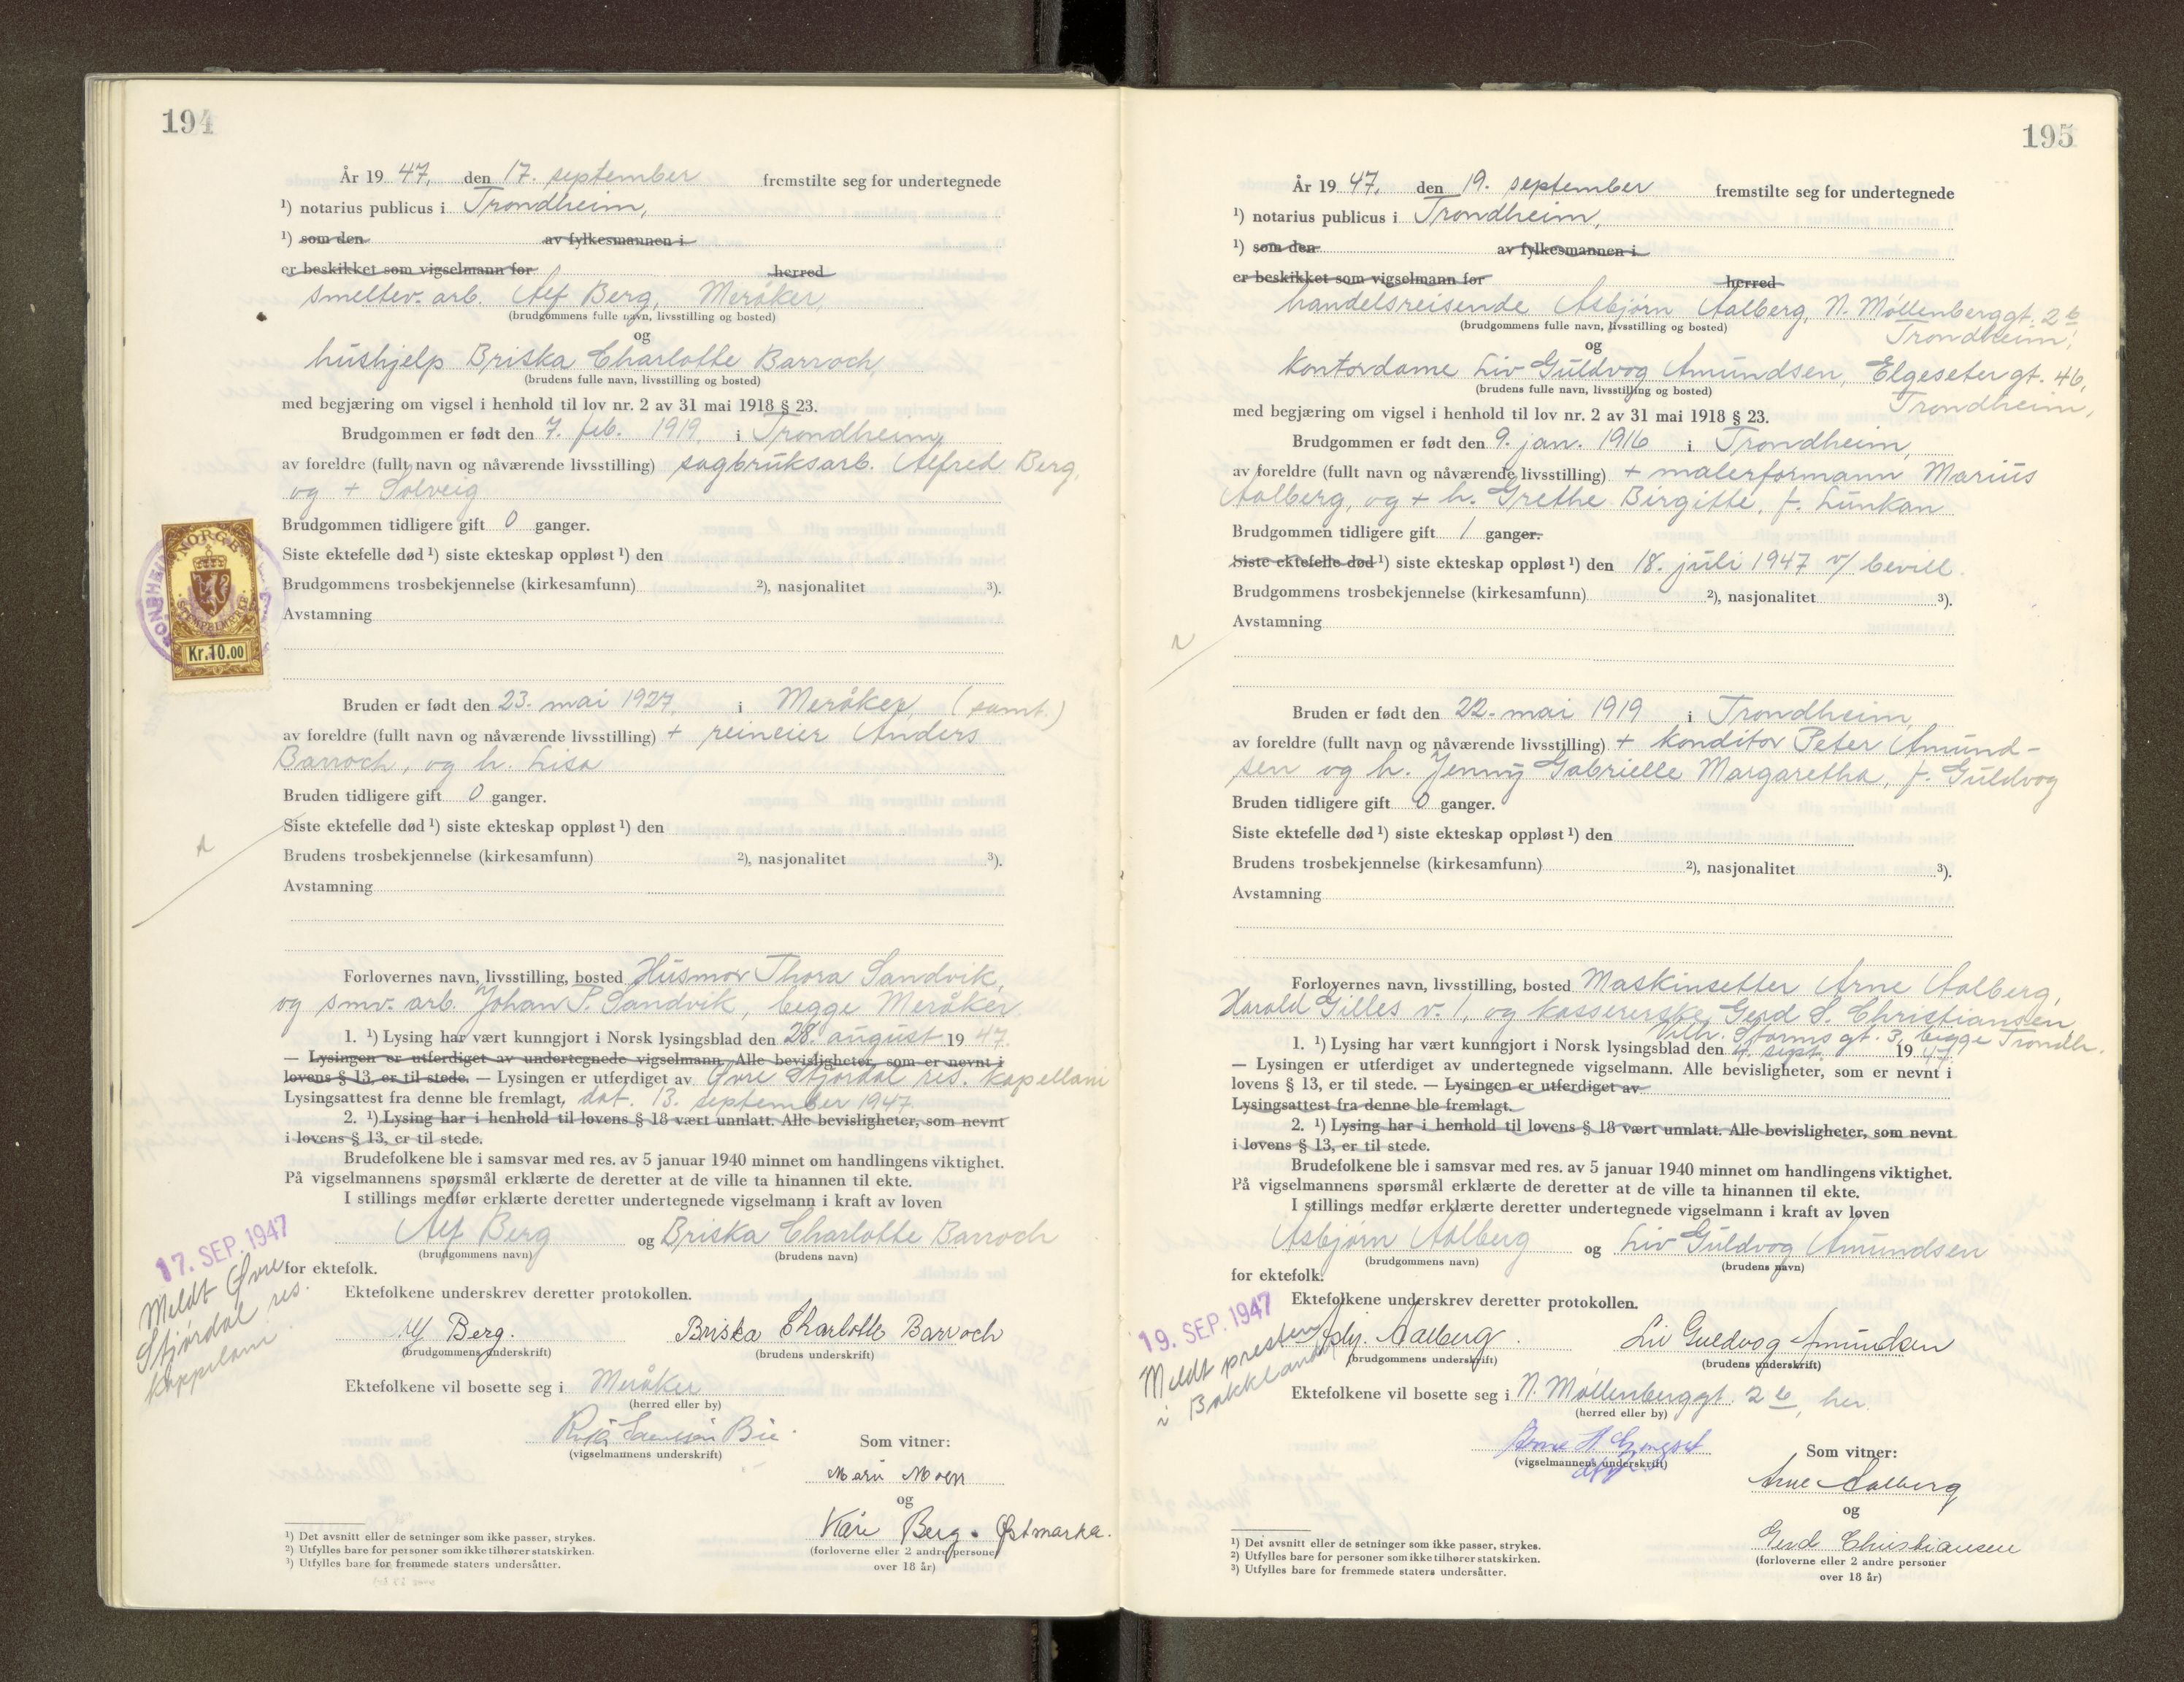 194
År 19 47, den 17. september fremstilte seg for undertegnede
¹) notarius publicus i Trondheim,
¹) som den av fylkesmannen i
er beskikket som vigselmann for herred
smeltev. arb. Alf Berg, Meråker,
(brudgommens fulle navn, livsstilling og bosted)
og
hushjelp Briska Charlotte Barroch,
(brudens fulle navn, livsstilling og bosted)
med begjæring om vigsel i henhold til lov nr. 2 av 31 mai 1918 § 23.
Brudgommen er født den 7. feb. 1919, i Trondheim,
av foreldre (fullt navn og nåværende livsstilling) sagbruksarb. Alfred Berg,
og + Solveig
Brudgommen tidligere gift 0 ganger.
Siste ektefelle død ¹) siste ekteskap oppløst ¹) den
Brudgommens trosbekjennelse (kirkesamfunn) ²), nasjonalitet ³).
Avstamning
NORGE
STEMPELMERKE
Kr. 10.00
Bruden er født den 23. mai 1927, i Meråker, (samt.)
av foreldre (fullt navn og nåværende livsstilling) + reineier Anders
Barroch, og h. Lisa
Bruden tidligere gift 0 ganger.
Siste ektefelle død ¹) siste ekteskap oppløst ¹) den
Brudens trosbekjennelse (kirkesamfunn) ²), nasjonalitet ³).
Avstamning
Forlovernes navn, livsstilling, bosted Husmor Thora Sandvik,
og smv. arb. Johan P. Sandvik, begge Meråker
1. ¹) Lysing har vært kunngjort i Norsk lysingsblad den 28. august 19 47.
— Lysingen er utferdiget av undertegnede vigselmann. Alle bevisligheter, som er nevnt i
lovens § 13, er til stede. — Lysingen er utferdiget av Øvre Stjørdal res. kapellani
Lysingsattest fra denne ble fremlagt, dat. 13. september 1947.
2. ¹) Lysing har i henhold til lovens § 18 vært unnlatt. Alle bevisligheter, som nevnt
i lovens § 13, er til stede.
Brudefolkene ble i samsvar med res. av 5 januar 1940 minnet om handlingens viktighet.
På vigselmannens spørsmål erklærte de deretter at de ville ta hinannen til ekte.
I stillings medfør erklærte deretter undertegnede vigselmann i kraft av loven
Alf Berg og Briska Charlotte Barroch
(brudgommens navn) (brudens navn)
for ektefolk.
17. SEP. 1947
Meldt Øvre
Stjørdal res.
kappelani
Ektefolkene underskrev deretter protokollen.
Alf Berg. Briska Charlotte Barroch
(brudgommens underskrift) (brudens underskrift)
Ektefolkene vil bosette seg i Meråker
(herred eller by)
(vigselmannens underskrift)
Som vitner:
Moen
og
Kåre Berg. Østmarka.
(forloverne eller 2 andre personer
over 18 år)
¹) Det avsnitt eller de setninger som ikke passer, strykes.
²) Utfylles bare for personer som ikke tilhører statskirken.
³) Utfylles bare for fremmede staters undersåtter.
195
År 19 47, den 19. september fremstilte seg for undertegnede
¹) notarius publicus i Trondheim,
¹) som den av fylkesmannen i
er beskikket som vigselmann for herred
handelsreisende Asbjørn Aalberg, N. Møllenberggt. 2 b
Trondheim,
(brudgommens fulle navn, livsstilling og bosted)
og
kontordame Liv Guldvog Amundsen, Elgesetergt. 46,
Trondheim,
(brudens fulle navn, livsstilling og bosted)
med begjæring om vigsel i henhold til lov nr. 2 av 31 mai 1918 § 23.
Brudgommen er født den 9. jan. 1916 i Trondheim,
av foreldre (fullt navn og nåværende livsstilling) + malerformann Marius
Aalberg, og + h. Grethe Birgitte, f. Lunkan
Brudgommen tidligere gift 1 ganger.
Siste ektefelle død ¹) siste ekteskap oppløst ¹) den 18. juli 1947 v/ bevill.
Brudgommens trosbekjennelse (kirkesamfunn) ²), nasjonalitet ³).
Avstamning
Bruden er født den 22. mai 1919 i Trondheim,
av foreldre (fullt navn og nåværende livsstilling) + konditor Peter Amund-
sen og h. Jenny Gabrielle Margaretha, f. Guldvog
Bruden tidligere gift 0 ganger.
Siste ektefelle død ¹) siste ekteskap oppløst ¹) den
Brudens trosbekjennelse (kirkesamfunn) ²), nasjonalitet ³).
Avstamning
Forlovernes navn, livsstilling, bosted Maskinsetter Arne Aalberg,
Harald Gilles v. 1, og kassererske Gerd S. Christiansen,
Vilh. Storms gt. 3, begge Trondh.
1. ¹) Lysing har vært kunngjort i Norsk lysingsblad den 4. sept. 19 47.
— Lysingen er utferdiget av undertegnede vigselmann. Alle bevisligheter, som er nevnt i
lovens § 13, er til stede. — Lysingen er utferdiget av
Lysingsattest fra denne ble fremlagt.
2. ¹) Lysing har i henhold til lovens § 18 vært unnlatt. Alle bevisligheter, som nevnt
i lovens § 13, er til stede.
Brudefolkene ble i samsvar med res. av 5 januar 1940 minnet om handlingens viktighet.
På vigselmannens spørsmål erklærte de deretter at de ville ta hinannen til ekte.
I stillings medfør erklærte deretter undertegnede vigselmann i kraft av loven
Asbjørn Aalberg og Liv Guldvog Amundsen
(brudgommens navn) (brudens navn)
for ektefolk.
19. SEP. 1947
Meldt presten
i Bakklandet
Ektefolkene underskrev deretter protokollen.
Asbj. Aalberg. Liv Guldvog Amundsen
(brudgommens underskrift) (brudens underskrift)
Ektefolkene vil bosette seg i N. Møllenberggt. 2 b, her.
(herred eller by)
(vigselmannens underskrift)
Som vitner:
Arne Aalberg
og
Gerd Christiansen
(forloverne eller 2 andre personer
over 18 år)
¹) Det avsnitt eller de setninger som ikke passer, strykes.
²) Utfylles bare for personer som ikke tilhører statskirken.
³) Utfylles bare for fremmede staters undersåtter.